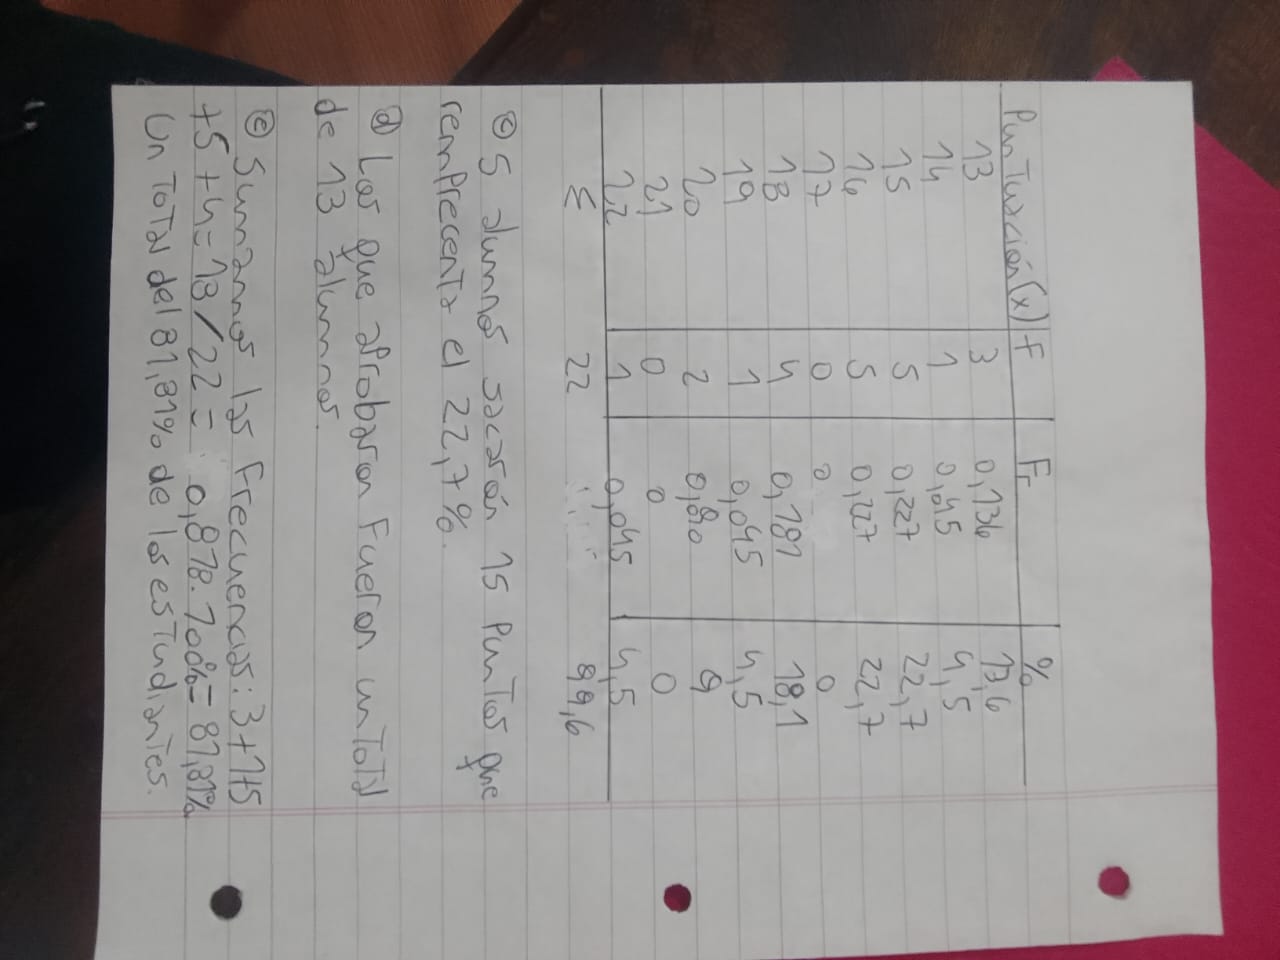 Puntuación(x) f Fr %
13 3 0,136 13,6
14 1 0,045 4,5
15 5 0,227 22,7
16 5 0,227 22,7
17 0 0 0
18 4 0,181 18,1
19 1 0,045 4,5
20 2 0,090 9
21 0 0 0
22 1 0,045 4,5
Σ 22 99,6
c 5 alumnos sacarón 15 Puntos que
remprecenta el 22,7%.
d Los que aprobaron Fueron un Total
de 13 alumnos.
e Sumamos las Frecuencias: 3+1+5
+5+4=18/22= 0,818.100%=81,81%
Un Total del 81,81% de los estudiantes.